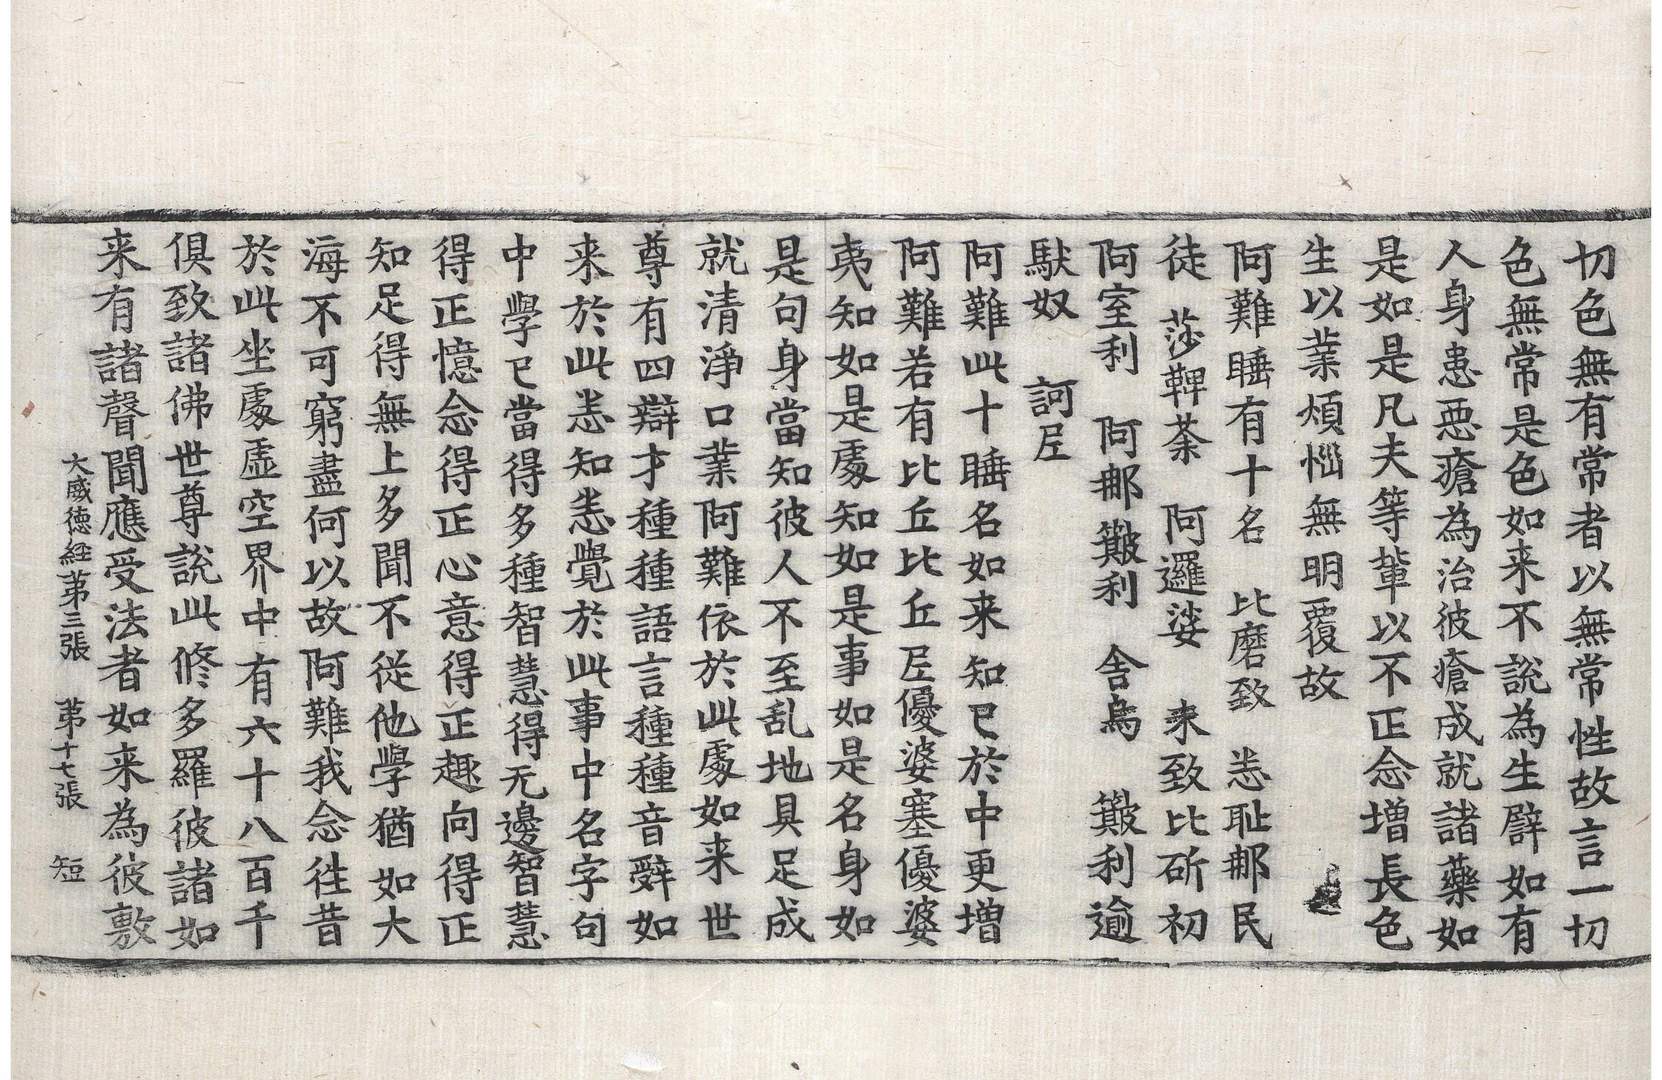 切色無有常者以無常性故言一切
色無常是色如来不說為生譬如有
人身患惡瘡為治彼瘡成就諸藥如
是如是凡夫等輩以不正念增長色
生以業煩惱無明覆故
阿難睡有十名 比磨致 恙耻那民
徒 莎鞞荼 阿邏娑 来致比斫初
阿室利 阿那䉬利 舍烏 䉬利逾
馱奴 訶𡰱
阿難此十睡名如来知已於中更增
阿難若有比丘比丘尼優婆塞優婆
夷知如是處知如是事如是名身如
是句身當知彼人不至乱地具足成
就清淨口業阿難依於此處如来世
尊有四辯才種種語言種種音辭如
来於此悉知悉覺於此事中名字句
中學已當得多種智慧得无邊智慧
得正憶念得正心意得正趣向得正
知足得無上多聞不從他學猶如大
海不可窮盡何以故阿難我念往昔
於此坐處虛空界中有六十八百千
俱致諸佛世尊說此修多羅彼諸如
来有諸聲聞應受法者如来為彼敷
大威德経第三張 第十七張 短